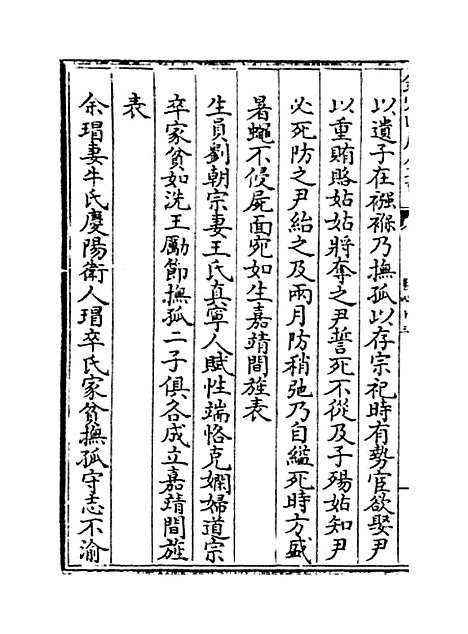 以遺子在襁褓乃撫孤以存宗祀時有勢官欲娶尹
以重賄賂姑姑將奪之尹誓死不從及子殤姑知尹
必死防之尹紿之及兩月防稍弛乃自縊死時方盛
暑蠅不侵屍面宛如生嘉靖間旌表
生員劉朝宗妻王氏真寧人賦性端恪克嫻婦道宗
卒家貧如洗王勵節撫孤二子俱各成立嘉靖間旌
表
余琄妻牛氏慶陽衛人琄卒氏家貧撫孤守志不渝